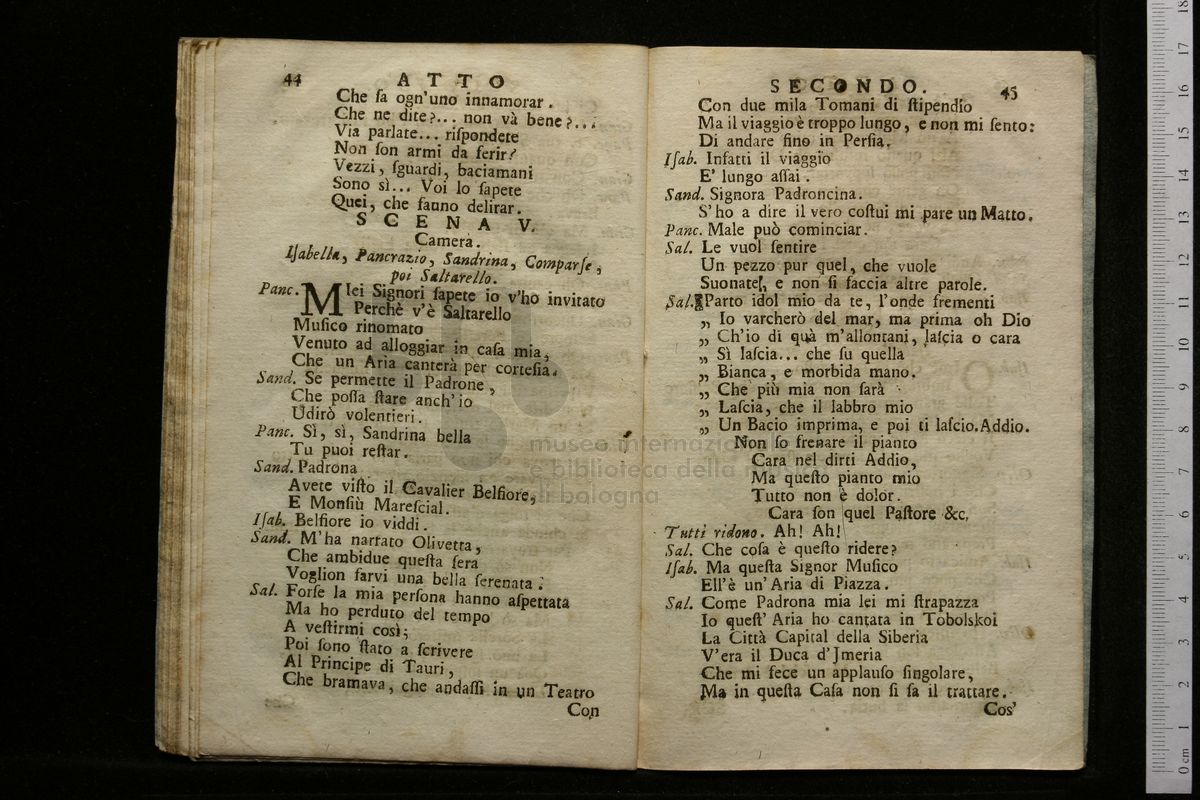 44 ATTO
Che ſa ogn'uno innamorar.
Che ne dite?... non và bene?...
Via parlate... riſpondete
Non ſon armi da ferir?
Vezzi, ſguardi, baciamani
Sono sì... Voi lo ſapete
Quei, che fauno delirar.
SCENA V.
Camera.
Iſabella, Pancrazio, Sandrina, Comparſe,
poi Saltarello.
Panc. MIei Signori ſapete io v'ho invitato
Perchè v'è Saltarello
Muſico rinomato
Venuto ad alloggiar in caſa mia,
Che un Aria canterà per corteſia.
Sand. Se permette il Padrone,
Che poſſa ſtare anch'io
Udirò volentieri.
Panc. Sì, sì, Sandrina bella
Tu puoi reſtar.
Sand. Padrona
Avete viſto il Cavalier Belfiore,
E Monſiù Mareſcial.
Iſab. Belfiore io viddi.
Sand. M'ha narrato Olivetta,
Che ambidue queſta ſera
Voglion farvi una bella ſerenata.
Sal. Forſe la mia perſona hanno aſpettata
Ma ho perduto del tempo
A veſtirmi così;
Poi ſono ſtato a ſcrivere
Al Principe di Tauri,
Che bramava, che andaſſi in un Teatro
Con
SECONDO. 45
Con due mila Tomani di ſtipendio
Ma il viaggio è troppo lungo, e non mi ſento:
Di andare fino in Perſia.
Iſab. Infatti il viaggio
E' lungo aſſai.
Sand. Signora Padroncina.
S'ho a dire il vero coſtui mi pare un Matto.
Panc. Male può cominciar.
Sal. Le vuol ſentire
Un pezzo pur quel, che vuole
Suonate, e non ſi faccia altre parole.
Sal. Parto idol mio da te, l'onde frementi
„ Io varcherò del mar, ma prima oh Dio
„ Ch'io di quà m'allontani, laſcia o cara
„ Sì laſcia... che ſu quella
„ Bianca, e morbida mano.
„ Che più mia non ſarà
„ Laſcia, che il labbro mio
„ Un Bacio imprima, e poi ti laſcio. Addio.
Non ſo frenare il pianto
Cara nel dirti Addio,
Ma queſto pianto mio
Tutto non è dolor.
Cara ſon quel Paſtore &c.
Tutti ridono. Ah! Ah!
Sal. Che coſa è queſto ridere?
Iſab. Ma queſta Signor Muſico
Ell'è un'Aria di Piazza.
Sal. Come Padrona mia lei mi ſtrapazza
Io queſt'Aria ho cantata in Tobolskoi
La Città Capital della Siberia
V'era il Duca d'Jmeria
Che mi fece un applauſo ſingolare,
Ma in queſta Caſa non ſi ſa il trattare.
Cos'
museo internazio
e biblioteca della
di bologna
0 cm 1 2 3 4 5 6 7 8 9 10 11 12 13 14 15 16 17 18